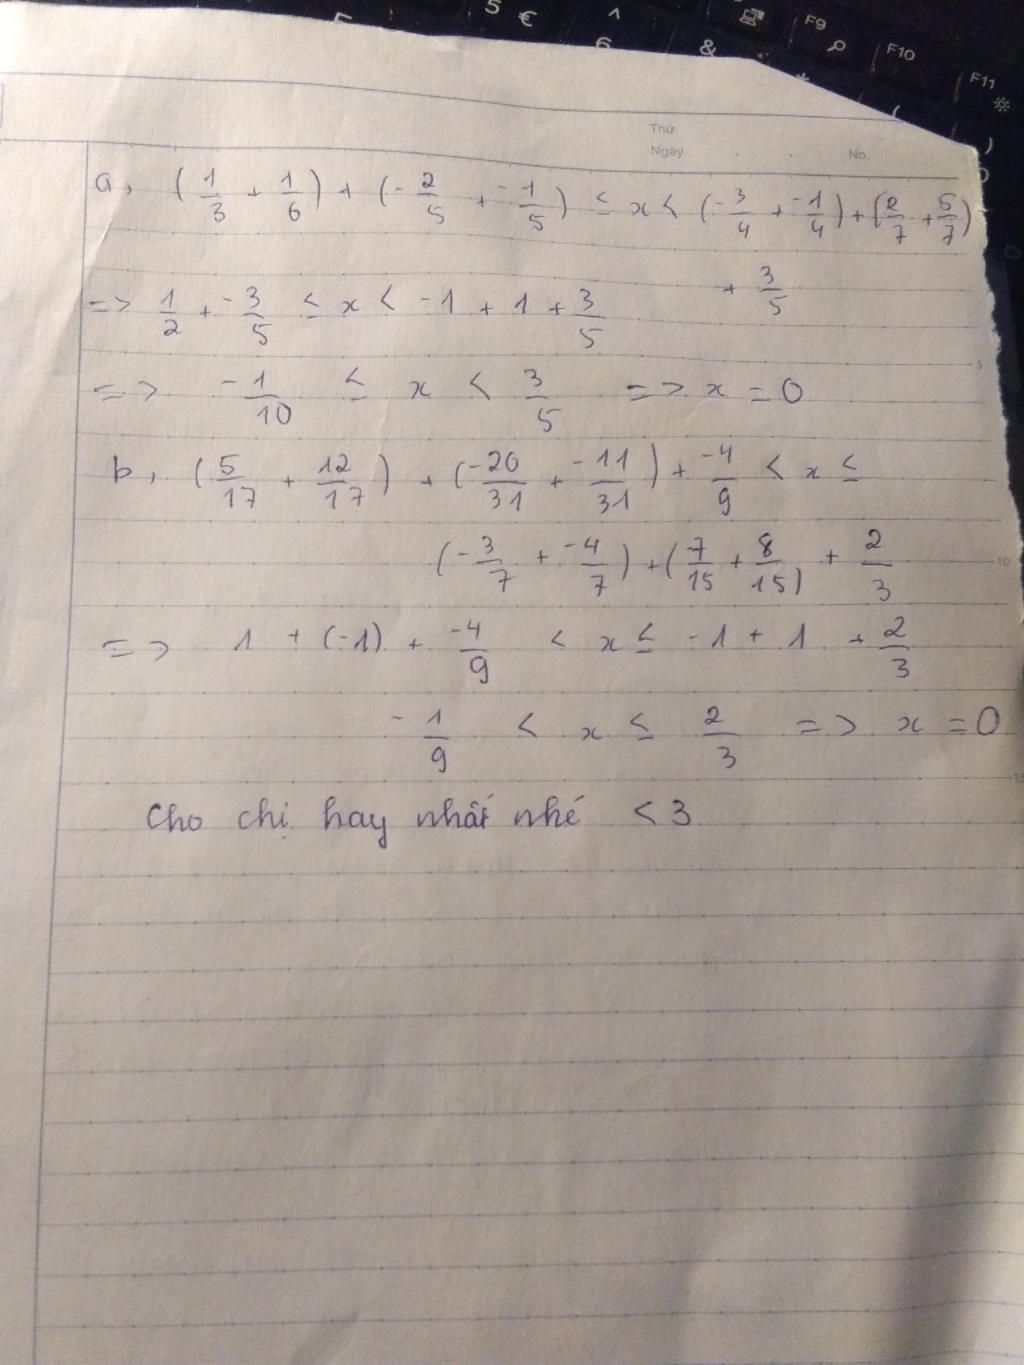 5 € ^ 6 & F9 F10 F11
Thứ
Ngày No.
a, (1/3 + 1/6) + (-2/5 + -1/5) ≤ x < (-3/4 + -1/4) + (2/7 + 5/7)
+ 3/5
=> 1/2 + -3/5 ≤ x < -1 + 1 + 3/5
5
=> -1/10 ≤ x < 3/5 => x = 0
b, (5/17 + 12/17) + (-20/31 + -11/31) + -4/9 < x ≤
(-3/7 + -4/7) + (7/15 + 8/15) + 2/3
10
=> 1 + (-1) + -4/9 < x ≤ -1 + 1 + 2/3
-1/9 < x ≤ 2/3 => x = 0
Cho chị hay nhất nhé <3